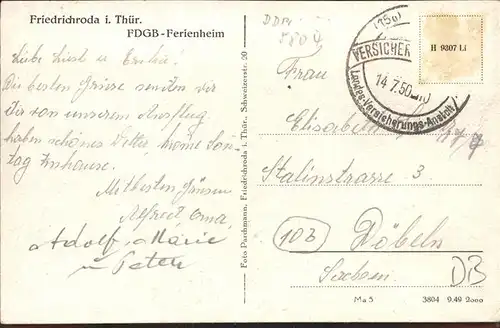 Friedrichroda i. Thür.
FDGB-Ferienheim
Liebe Liesel u. Emilie!
Die besten Grüsse senden wir
Dir von unserem Ausflug
haben schönes Wetter, komme Sonn-
tag Zuhause.
Mit besten Grüssen
Alfred, Oma,
Adolf, Marie
u. Peter
Foto Parchmann, Friedrichroda i. Thür., Schweizerstr. 20
DDR
(15a)
VERSICHER
14.7.50
Landes-Versicherungs-Anstalt
H 9307 Li
Frau
Elisabeth
Stalinstrasse 3
(10b)
Döbeln
Sachsen
DB
Ma 5 3804 9.49 2000